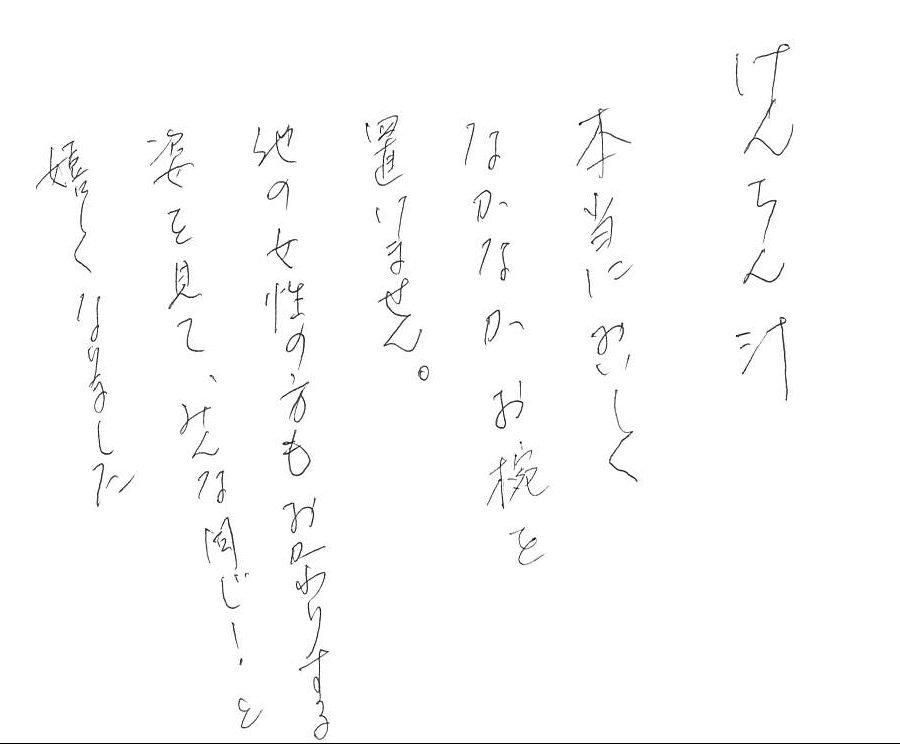 けんちん汁
本当においしく
なかなかお椀を
置けません。
他の女性の方もおかわりする
姿を見て、みんな同じ！と
嬉しくなりました